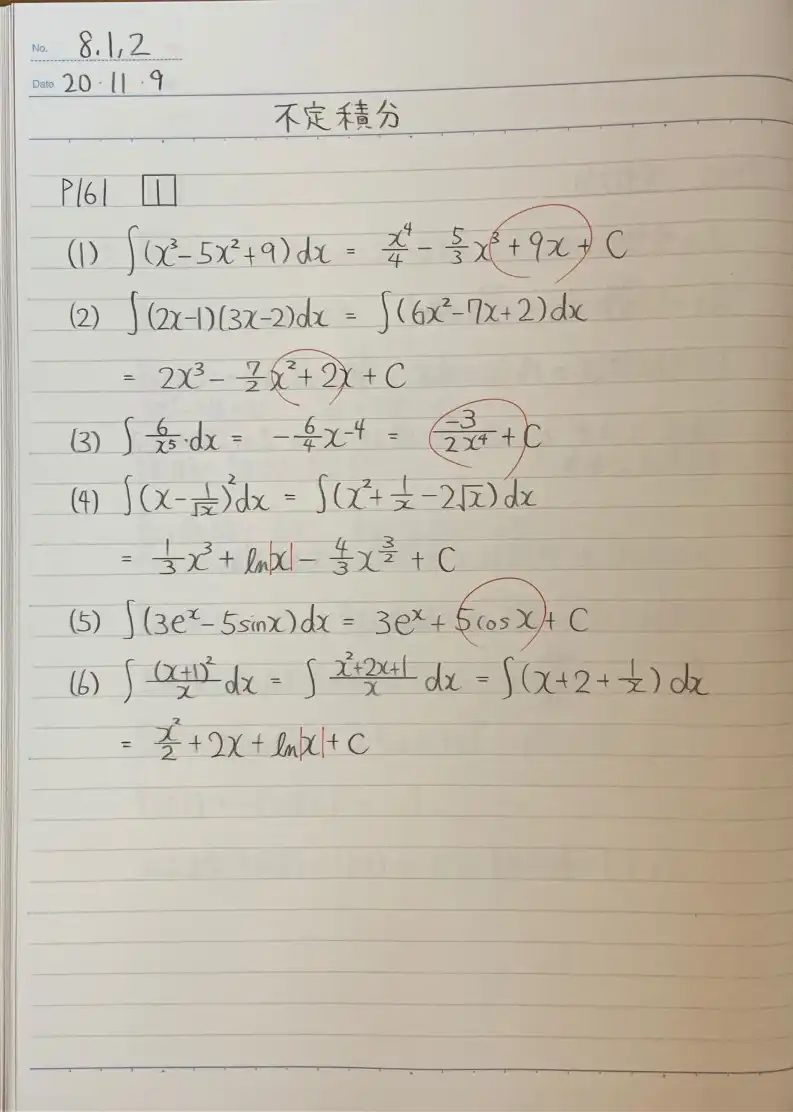 No. 8.1,2
Date 20・11・9
不定積分
P161 1
(1) ∫(x³-5x²+9)dx = x⁴/4 - 5/3 x³ + 9x + C
(2) ∫(2x-1)(3x-2)dx = ∫(6x²-7x+2)dx
= 2x³ - 7/2 x² + 2x + C
(3) ∫ 6/x⁵・dx = -6/4 x⁻⁴ = -3/2x⁴ + C
(4) ∫(x - 1/√x)²dx = ∫(x² + 1/x - 2√x)dx
= 1/3 x³ + ln|x| - 4/3 x^(3/2) + C
(5) ∫(3eˣ - 5sinx)dx = 3eˣ + 5cosx + C
(6) ∫ (x+1)²/x dx = ∫ x²+2x+1/x dx = ∫(x+2+1/x)dx
= x²/2 + 2x + ln|x| + C